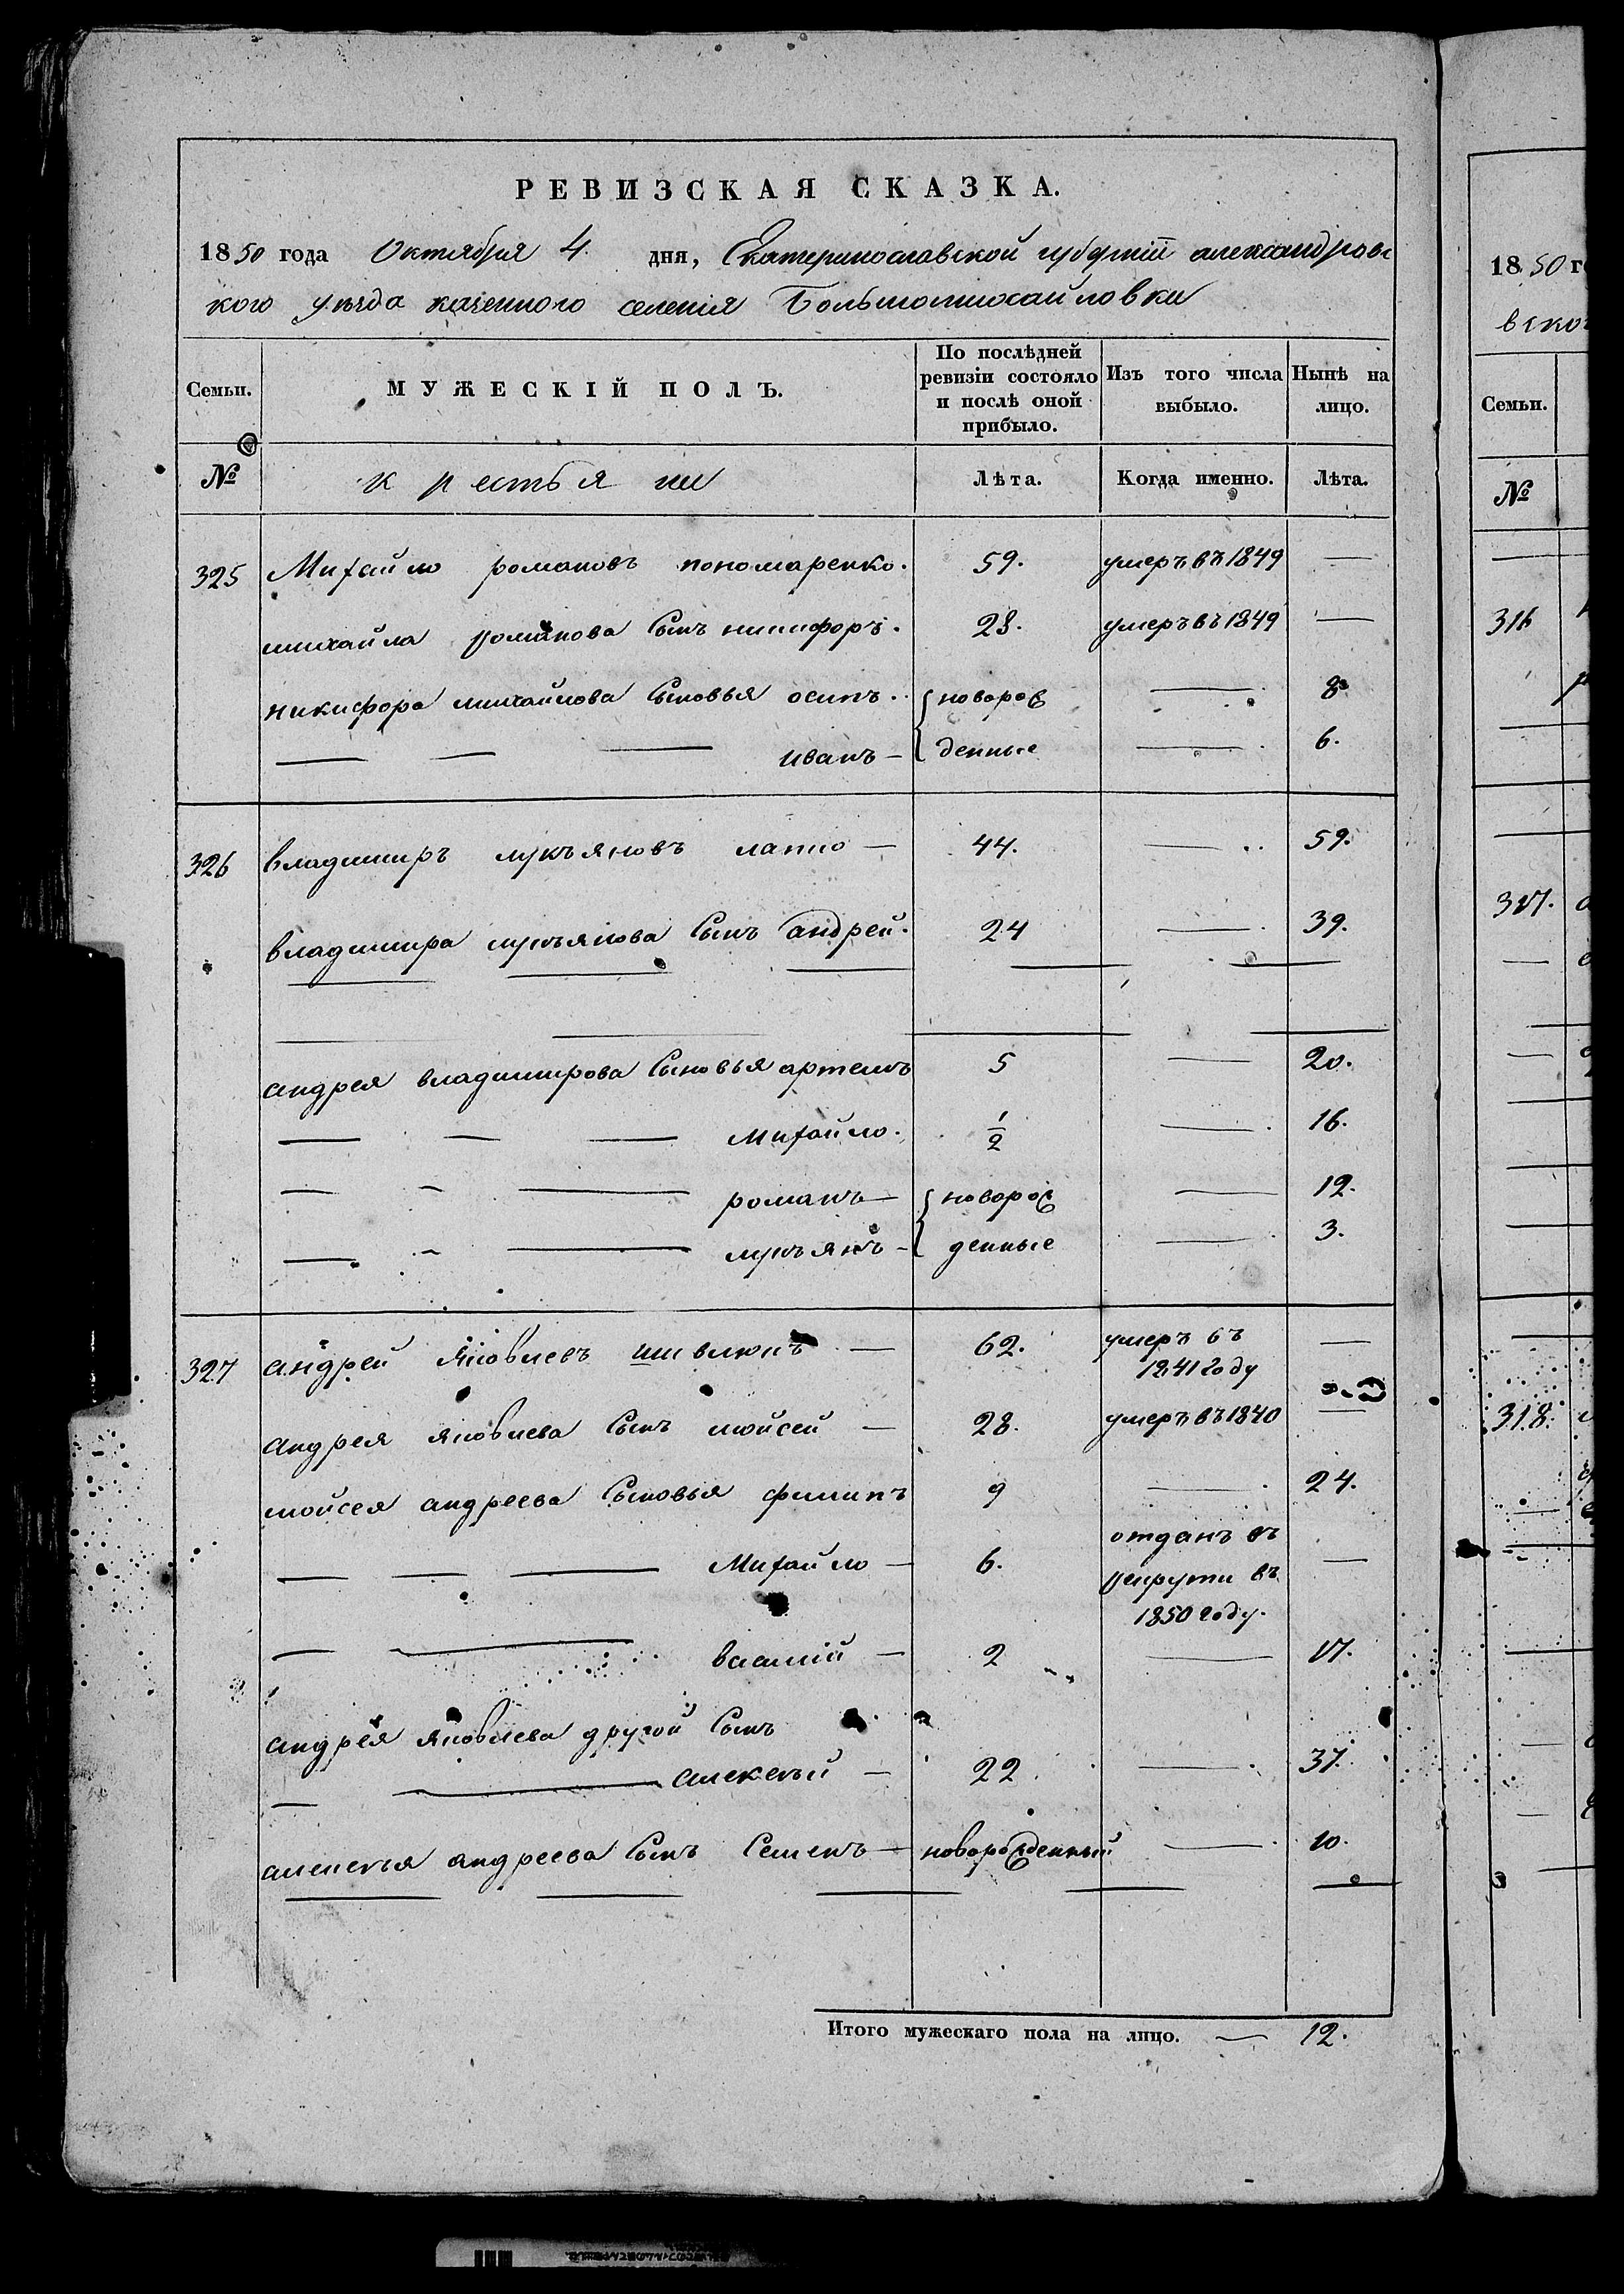 РЕВИЗСКАЯ СКАЗКА.
1850 года Октября 4 дня, Екатеринославской губерніи александровс
кого уѣзда казенного селенія Большомихайловки
Семьи. МУЖЕСКІЙ ПОЛЪ. По послѣдней ревизіи состояло и послѣ оной прибыло. Изъ того числа выбыло. Нынѣ на лицо.
№ крестьяни Лѣта. Когда именно. Лѣта.
325 Михайло романовъ пономаренко. 59. умеръ въ 1849 —
михайла романова Сынъ никифоръ. 28. умеръ въ 1849 —
никифора михайлова Сыновья осипъ. новорож — 8
— — — иванъ — денные — 6.
326 владимиръ лукъяновъ лапко — 44. — 59.
владимира лукъянова Сынъ андрей. 24 — 39.
андрея владимирова Сыновья артемъ 5 — 20.
— — — Михайло. 1/2 — 16.
— — — романъ — новорож — 12.
— — — лукъянъ — денные — 3.
327 андрей яковлевъ шивлюкъ — 62. умеръ въ
1841 году —
андрея яковлева Сынъ мойсей — 28. умеръ въ 1840 —
мойсея андреева Сыновья филипъ 9 — 24.
— — — Михайло — 6. отданъ въ
рекруты въ
1850 году. —
— — василій — 2 — 17.
андрея яковлева другой Сынъ
— — алексѣй — 22 — 37.
алексѣя андреева Сынъ Семенъ — новорожденный — 10.
Итого мужескаго пола на лицо. — 12.
1850 г
вско
Семьи.
№
316
317.
318.